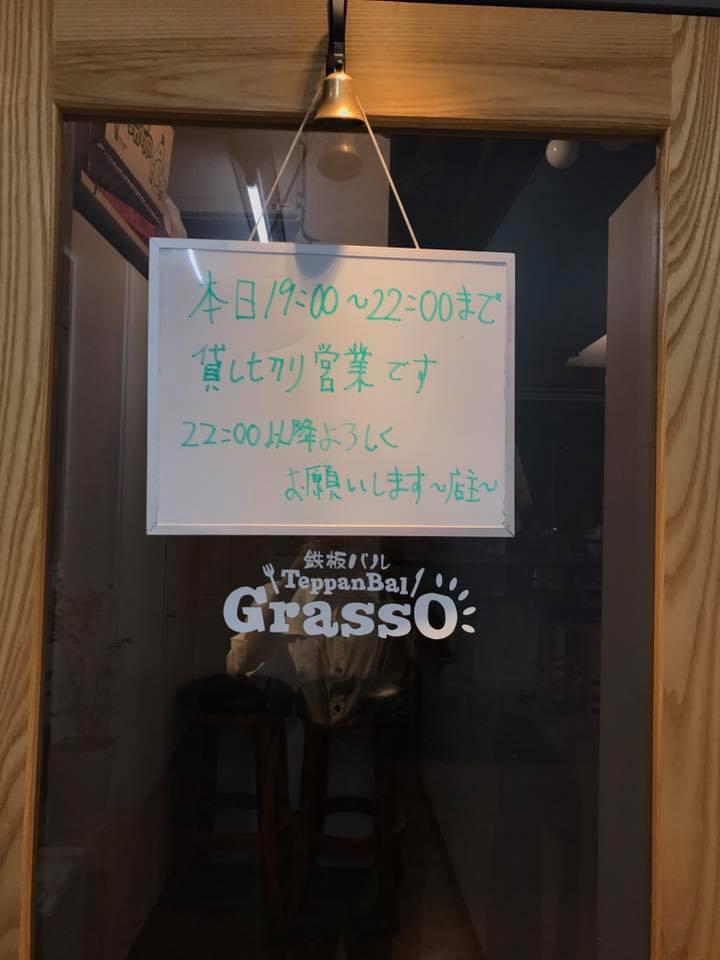 本日19:00～22:00まで
貸し切り営業です
22:00以降よろしく
お願いします～店主～
鉄板バル
TeppanBal
GrassO